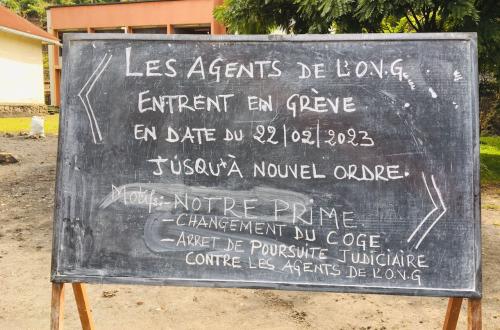 « LES AGENTS DE L'O.V.G.
ENTRENT EN GRÈVE
EN DATE DU 22/02/2023
JUSQU'À NOUVEL ORDRE.
Motifs:-NOTRE PRIME
-CHANGEMENT DU COGE
-ARRET DE POURSUITE JUDICIAIRE
CONTRE LES AGENTS DE L'O.V.G »